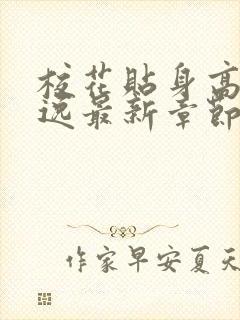 校花贴身高
逸最新章节
作家早安夏天